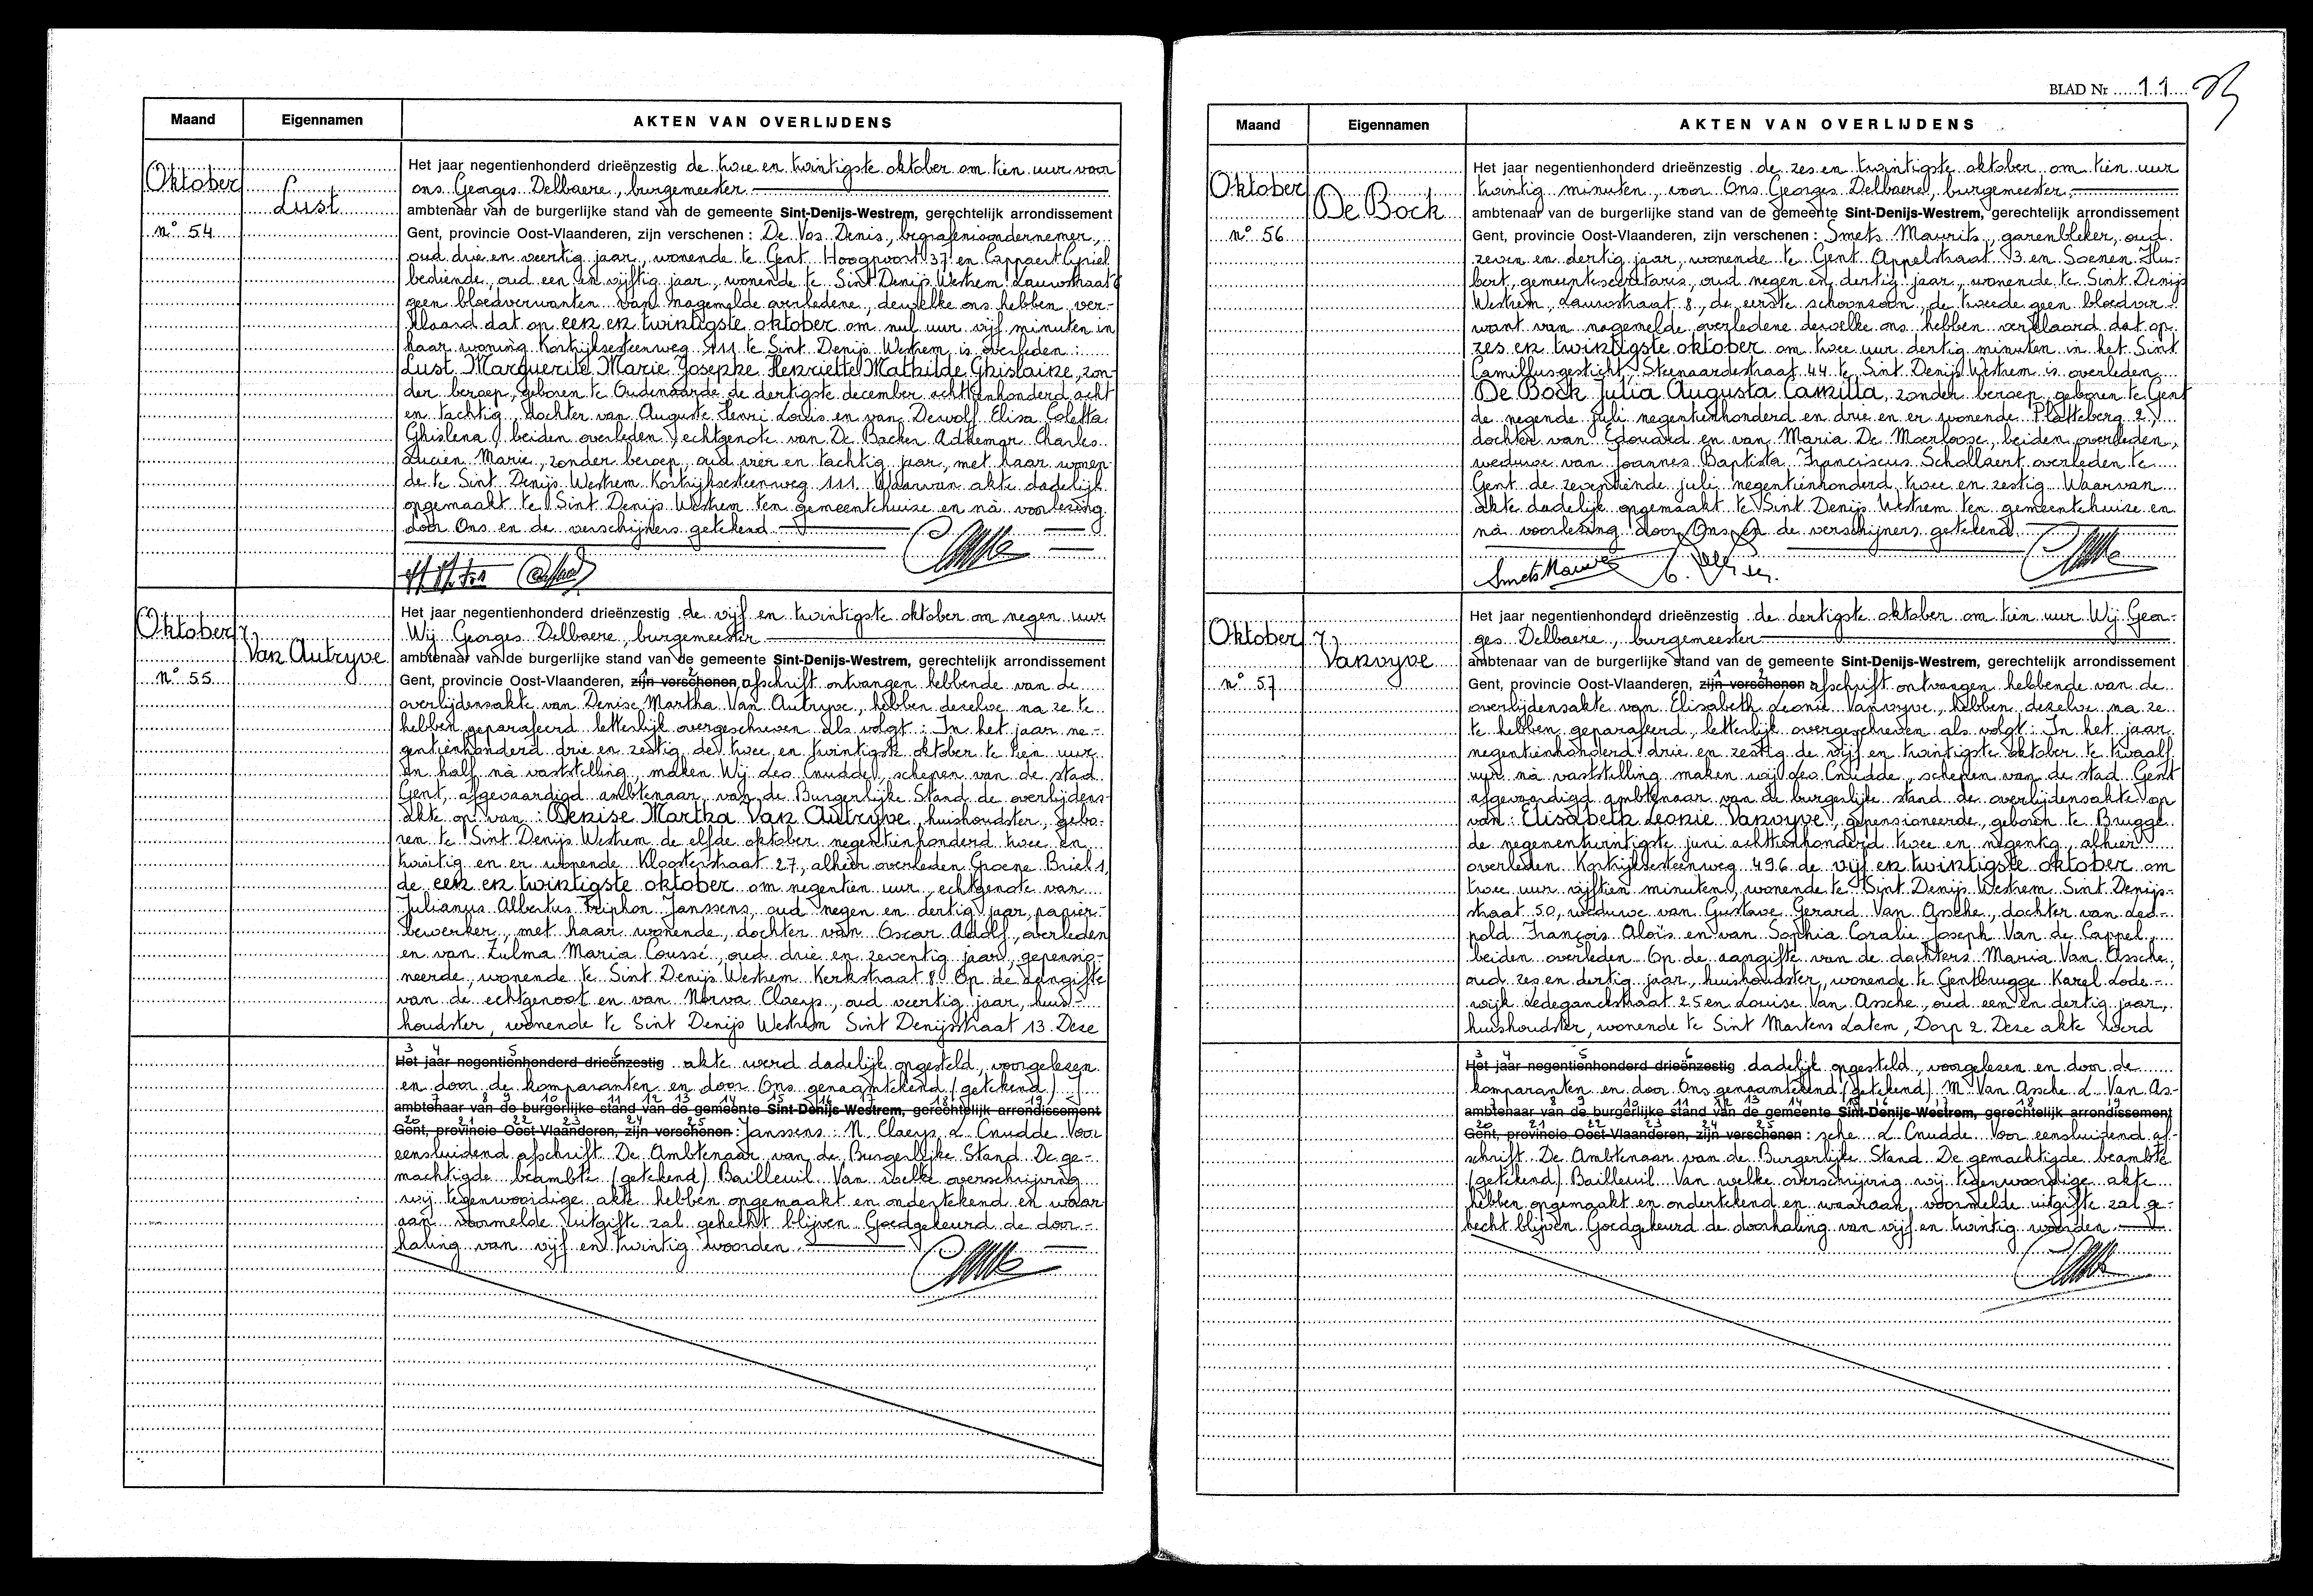 Maand
Eigennamen
AKTEN VAN OVERLIJDENS
Oktober
Lust
n° 54
Het jaar negentienhonderd drieënzestig de twee en twintigste oktober om tien uur voor
ons Georges Delbaere, burgemeester
ambtenaar van de burgerlijke stand van de gemeente Sint-Denijs-Westrem, gerechtelijk arrondissement
Gent, provincie Oost-Vlaanderen, zijn verschenen : De Vos Denis, begrafenisondernemer,
oud drie en veertig jaar, wonende te Gent Hoogpoort 37 en Cappaert Cyriel
bediende, oud een en vijftig jaar, wonende te Sint Denijs Westrem Lauwstraat
geen bloedverwanten van nagemelde overledene, dewelke ons hebben ver-
klaard dat op een en twintigste oktober om nul uur vijf minuten in
haar woning Kortrijksesteenweg 111 te Sint Denijs Westrem is overleden :
Lust Marguerite Marie Josephe Henriette Mathilde Ghislaine, zon-
der beroep, geboren te Oudenaarde de dertigste december achttienhonderd acht
en tachtig, dochter van Auguste Henri Louis en van Dewolf Elisa Coletta
Ghislena, beiden overleden, echtgenote van De Backer Adhemar Charles
Lucien Marie, zonder beroep, oud vier en tachtig jaar, met haar wonen-
de te Sint Denijs Westrem Kortrijksesteenweg 111. Waarvan akte dadelijk
opgemaakt te Sint Denijs Westrem ten gemeentehuize en nà voorlezing
door Ons en de verschijners getekend
Oktober
Van Autryve
n° 55
Het jaar negentienhonderd drieënzestig de vijf en twintigste oktober om negen uur
Wij Georges Delbaere, burgemeester
ambtenaar van de burgerlijke stand van de gemeente Sint-Denijs-Westrem, gerechtelijk arrondissement
1 2
Gent, provincie Oost-Vlaanderen, zijn verschenen afschrift ontvangen hebbende van de
overlijdensakte van Denise Martha Van Autryve, hebben dezelve na ze te
hebben geparafeerd letterlijk overgeschreven als volgt : In het jaar ne-
gentienhonderd drie en zestig de twee en twintigste oktober te tien uur
en half nà vaststelling, maken Wij Leo Cnudde, schepen van de stad
Gent, afgevaardigd ambtenaar van de Burgerlijke Stand de overlijdens-
akte op van : Denise Martha Van Autryve, huishoudster, gebo-
ren te Sint Denijs Westrem de elfde oktober negentienhonderd twee en
twintig en er wonende Kloosterstraat 27, alhier overleden Groene Briel 1,
de een en twintigste oktober om negentien uur, echtgenote van
Julianus Albertus Triphon Janssens, oud negen en dertig jaar, papier-
bewerker, met haar wonende, dochter van Oscar Adolf, overleden
en van Zulma Maria Coussé, oud drie en zeventig jaar, gepensio-
neerde, wonende te Sint Denijs Westrem Kerkstraat 8. Op de aangifte
van de echtgenoot en van Norva Claeys, oud veertig jaar, huis-
houdster, wonende te Sint Denijs Westrem Sint Denijsstraat 13. Deze
3 4 5 6
Het jaar negentienhonderd drieënzestig akte werd dadelijk opgesteld, voorgelezen
en door de komparanten en door Ons genaamtekend (getekend) J
7 8 9 10 11 12 13 14 15 16 17 18 19
ambtenaar van de burgerlijke stand van de gemeente Sint-Denijs-Westrem, gerechtelijk arrondissement
20 21 22 23 24 25
Gent, provincie Oost-Vlaanderen, zijn verschenen : Janssens : N. Claeys L Cnudde Voor
eensluidend afschrift De Ambtenaar van de Burgerlijke Stand De ge-
machtigde beambte (getekend) Bailleuil Van welke overschrijving
wij tegenwoordige akte hebben opgemaakt en ondertekend en waar-
aan voormelde uitgifte zal gehecht blijven Goedgekeurd de door-
haling van vijf en twintig woorden.
BLAD Nr 11
Maand
Eigennamen
AKTEN VAN OVERLIJDENS
Oktober
De Bock
n° 56
Het jaar negentienhonderd drieënzestig de zes en twintigste oktober om tien uur
twintig minuten, voor Ons Georges Delbaere, burgemeester,
ambtenaar van de burgerlijke stand van de gemeente Sint-Denijs-Westrem, gerechtelijk arrondissement
Gent, provincie Oost-Vlaanderen, zijn verschenen : Smets Maurits, garenbleker, oud
zeven en dertig jaar, wonende te Gent Appelstraat 3 en Soenen Hu-
bert, gemeentesecretaris, oud negen en dertig jaar, wonende te Sint Denijs
Westrem, Lauwstraat 8, de eerste schoonzoon, de tweede geen bloedver-
want van nagemelde overledene dewelke ons hebben verklaard dat op
zes en twintigste oktober om twee uur dertig minuten in het Sint
Camillusgesticht, Steenaardestraat 44 te Sint Denijs Westrem is overleden
De Bock Julia Augusta Camilla, zonder beroep, geboren te Gent
de negende juli negentienhonderd en drie en er wonende Platteberg 2,
dochter van Edouard en van Maria De Moerloose, beiden overleden,
weduwe van Joannes Baptista Franciscus Schollaert overleden te
Gent de zeventiende juli negentienhonderd twee en zestig Waarvan
akte dadelijk opgemaakt te Sint Denijs Westrem ten gemeentehuize en
nà voorlezing door Ons en de verschijners getekend.
Smets Maurits
Oktober
Vanvyve
n° 57
Het jaar negentienhonderd drieënzestig de dertigste oktober om tien uur Wij Geor-
ges Delbaere, burgemeester
ambtenaar van de burgerlijke stand van de gemeente Sint-Denijs-Westrem, gerechtelijk arrondissement
1 2
Gent, provincie Oost-Vlaanderen, zijn verschenen afschrift ontvangen hebbende van de
overlijdensakte van Elisabeth Leonie Vanvyve, hebben dezelve na ze
te hebben geparafeerd, letterlijk overgeschreven als volgt : In het jaar
negentienhonderd drie en zestig de vijf en twintigste oktober te twaalf
uur nà vaststelling maken wij Leo Cnudde, schepen van de stad Gent
afgevaardigd ambtenaar van de burgerlijke stand de overlijdensakte op
van : Elisabeth Leonie Vanvyve, gepensioneerde, geboren te Brugge
de negenentwintigste juni achttienhonderd twee en negentig, alhier
overleden Kortrijksesteenweg 496 de vijf en twintigste oktober om
twee uur vijftien minuten, wonende te Sint Denijs Westrem Sint Denijs-
straat 50, weduwe van Gustave Gerard Van Assche, dochter van Leo-
pold François Aloïs en van Sophia Coralie Joseph Van de Cappel,
beiden overleden Op de aangifte van de dochters Maria Van Assche,
oud zes en dertig jaar, huishoudster, wonende te Gentbrugge Karel Lode-
wijk Ledeganckstraat 25 en Louise Van Assche, oud een en dertig jaar,
huishoudster, wonende te Sint Martens Latem, Dorp 2. Deze akte werd
3 4 5 6
Het jaar negentienhonderd drieënzestig dadelijk opgesteld, voorgelezen en door de
komparanten en door Ons genaamtekend (getekend) M Van Assche L Van As-
7 8 9 10 11 12 13 14 15 16 17 18 19
ambtenaar van de burgerlijke stand van de gemeente Sint-Denijs-Westrem, gerechtelijk arrondissement
20 21 22 23 24 25
Gent, provincie Oost-Vlaanderen, zijn verschenen : sche L Cnudde Voor eensluidend af-
schrift De Ambtenaar van de Burgerlijke Stand De gemachtigde beambte
(getekend) Bailleuil Van welke overschrijving wij tegenwoordige akte
hebben opgemaakt en ondertekend en waaraan voormelde uitgifte zal ge-
hecht blijven Goedgekeurd de doorhaling van vijf en twintig woorden.